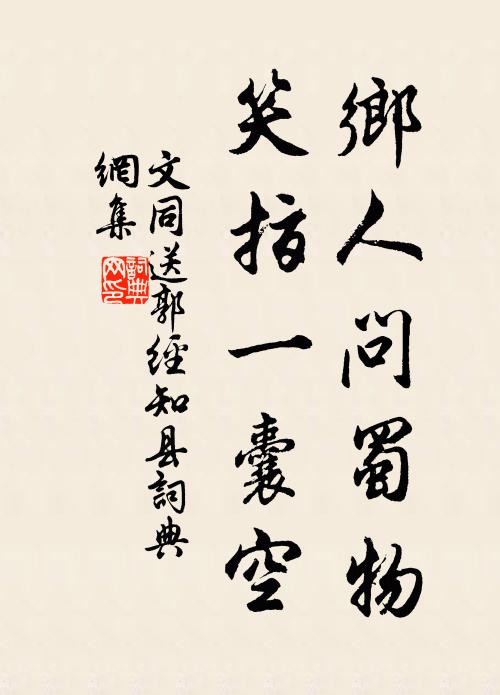 鄉人問蜀物
笑指一囊空
文同送郭經知县詞典
網集
詞典網印